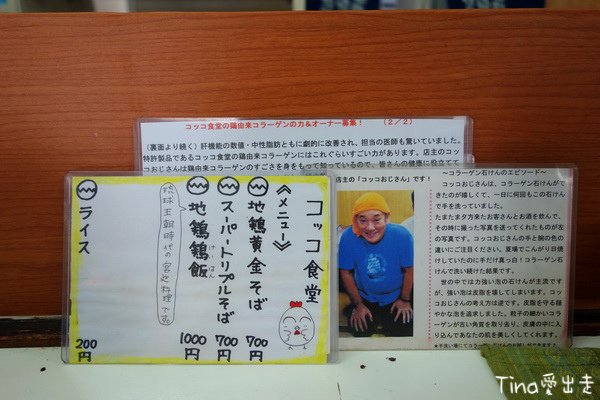 コッコ食堂の鶏由来コラーゲンの力&オーナー募集! (2/2)
(裏面より続く)肝機能の数値・中性脂肪ともに劇的に改善され、担当の医師も驚いていました。
特許製品であるコッコ食堂の鶏由来コラーゲンにはこれぐらいすごい力があります。店主のコッ
コおじさんは鶏由来コラーゲンのすごさを身をもって知っているので、皆さんの健康に役立てて
コッコ食堂
《メニュー》
地鶏黄金そば 700円
スーパートリプルそば 700円
地鶏鶏飯 1000円
けいはん
琉球王朝時代の宮廷料理です
ライス 200円
店主の「コッコおじさん」です!
~コラーゲン石けんのエピソード~
コッコおじさんは、コラーゲン石けんがで
きたのが嬉しくて、一日に何回もこの石けん
で手を洗っていました。
たまたま夕方来たお客さんとお酒を飲んで、
その時に撮った写真を送ってくれたものが左
の写真です。コッコおじさんの手と腕の色の
違いにご注目ください。夏場でこんがり日焼
けしていたのに手だけ真っ白!コラーゲン石
けんで洗い続けた結果です。
世の中では力強い泡の石けんが主流です
が、強い泡は皮脂を壊してしまいます。コッ
コおじさんの考え方は逆です。皮脂を守る穏
やかな泡を追求しました。粒子の細かいコラ
ーゲンが古い角質を取り去り、皮膚の中に入
り込んであなたの肌を美しくしてくれます。
★手洗い場にてコラーゲン石けんのお試しができます♪
Tina愛出走